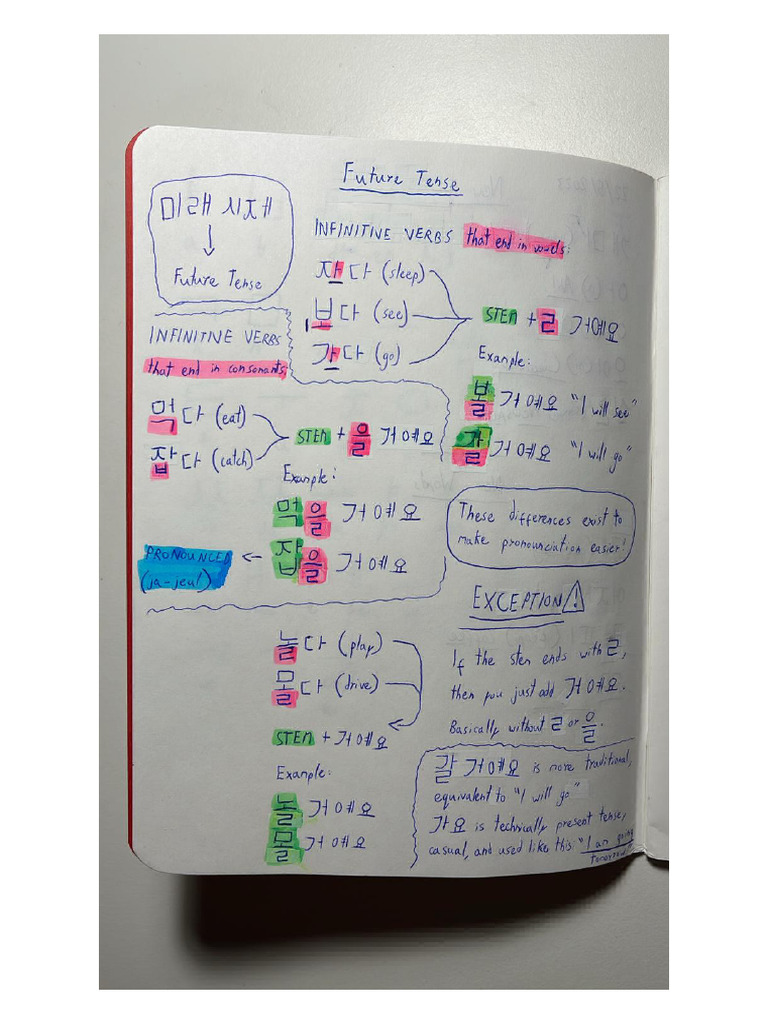 Future Tense
미래 시제
↓
Future Tense
INFINITIVE VERBS that end in vowels:
자다 (sleep)
보다 (see)
가다 (go)
STEM + ㄹ 거예요
Example:
볼 거예요 "I will see"
갈 거예요 "I will go"
INFINITIVE VERBS
that end in consonants:
먹다 (eat)
잡다 (catch)
STEM + 을 거예요
Example:
먹을 거예요
잡을 거예요
PRONOUNCED
(ja-jeul)
These differences exist to
make pronounciation easier!
EXCEPTION
If the stem ends with ㄹ,
then you just add 거예요.
Basically without ㄹ or 을.
놀다 (play)
몰다 (drive)
STEM + 거예요
Example:
놀 거예요
몰 거예요
갈 거예요 is more traditional,
equivalent to "I will go"
가요 is technically present tense,
casual, and used like this: "I am going
tomorrow"